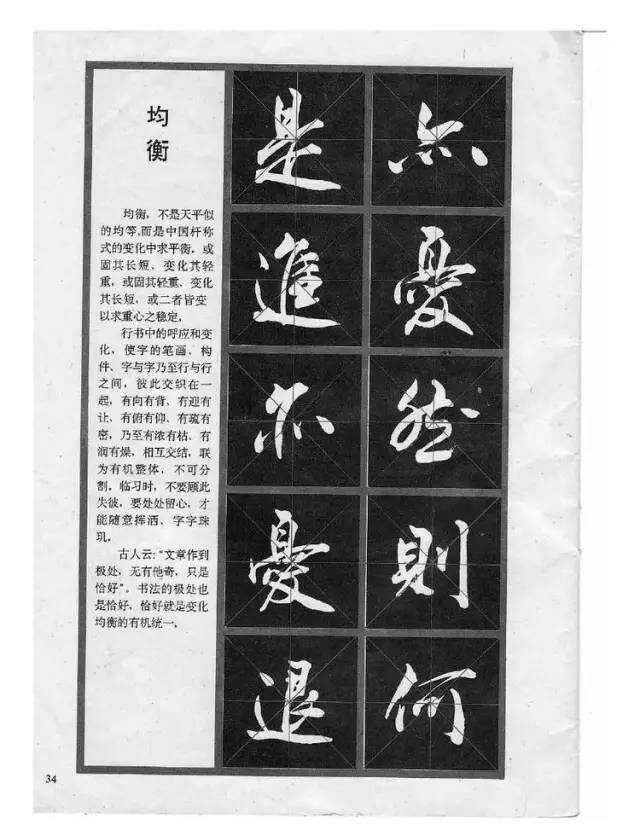 均衡
均衡，不是天平似
的均等，而是中国杆称
式的变化中求平衡。或
固其长短、变化其轻
重，或固其轻重、变化
其长短，或二者皆变
以求重心之稳定。
行书中的呼应和变
化，使字的笔画、构
件、字与字乃至行与行
之间，彼此交织在一
起，有向有背、有迎有
让、有俯有仰、有疏有
密，乃至有浓有枯、有
润有燥，相互交结，联
为有机整体，不可分
割。临习时，不要顾此
失彼，要处处留心，才
能随意挥洒、字字珠
玑。
古人云：“文章作到
极处，无有他奇，只是
恰好”。书法的极处也
是恰好，恰好就是变化
均衡的有机统一。
是進亦憂退
亦憂然則何
34